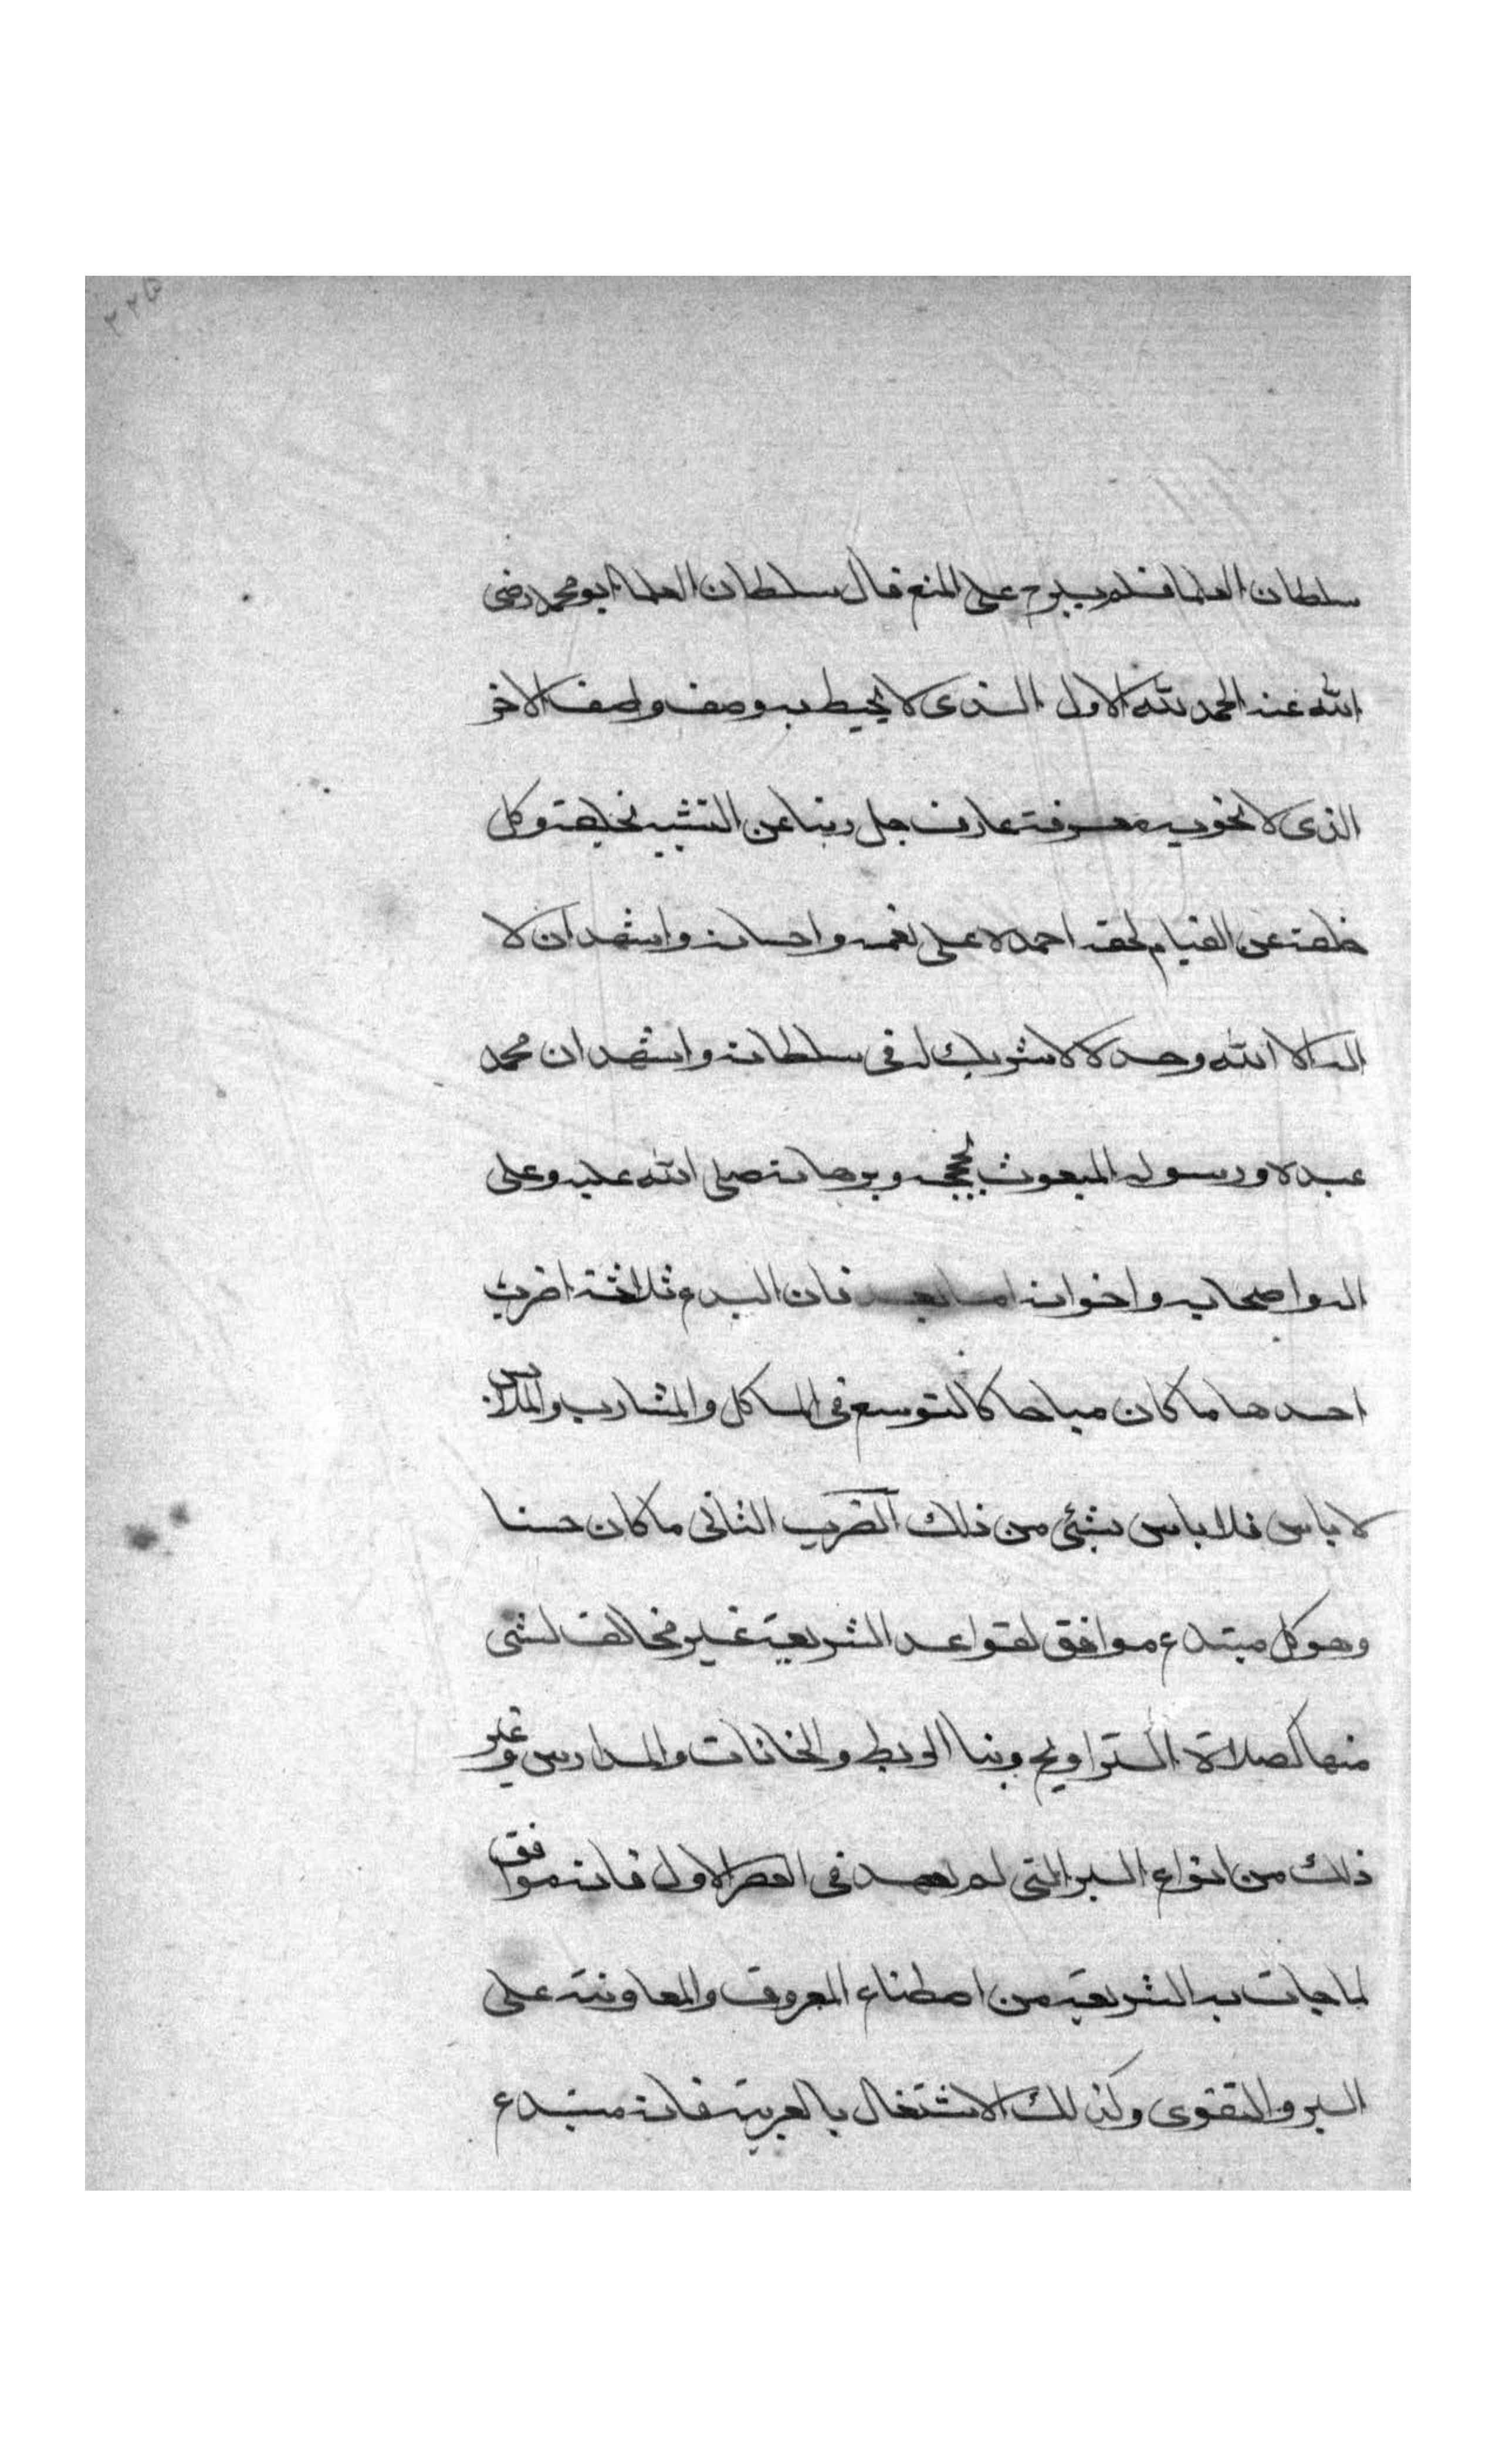 سلطان العلما فلم يبرح على المنع قال سلطان العلما ابو محمد رضى
الله عنه الحمد لله الاول الذى لا يحيط به وصف واصف الاخر
الذى لا تحويه معرفة عارف جل ربنا عن التشبيه بخلقه وكل
خلقه عن القيام بحقه احمده على نعمه واحسانه واشهد ان لا
اله الا الله وحده لا شريك له فى سلطانه واشهد ان محمد
عبده ورسوله المبعوث بحججه وبرهانه صلى الله عليه وعلى
اله واصحابه واخوانه اما بعد فان البدع ثلاثة اضرب
احدها ما كان مباحا كالتوسع فى الماكل والمشارب والملابس
لا باس فلا باس بشئ من ذلك الضرب الثانى ما كان حسنا
وهو كل مبتدع موافق لقواعد الشريعة غير مخالف لشى
منها كصلاة التراويح وبنا الربط والخانات والمدارس وغير
ذلك من انواع البر التى لم تعهد فى العصر الاول فانه موافق
لما جات به الشريعة من اصطناع المعروف والمعاونة على
البر والتقوى وكذلك الاشتغال بالعربية فانه مبتدع